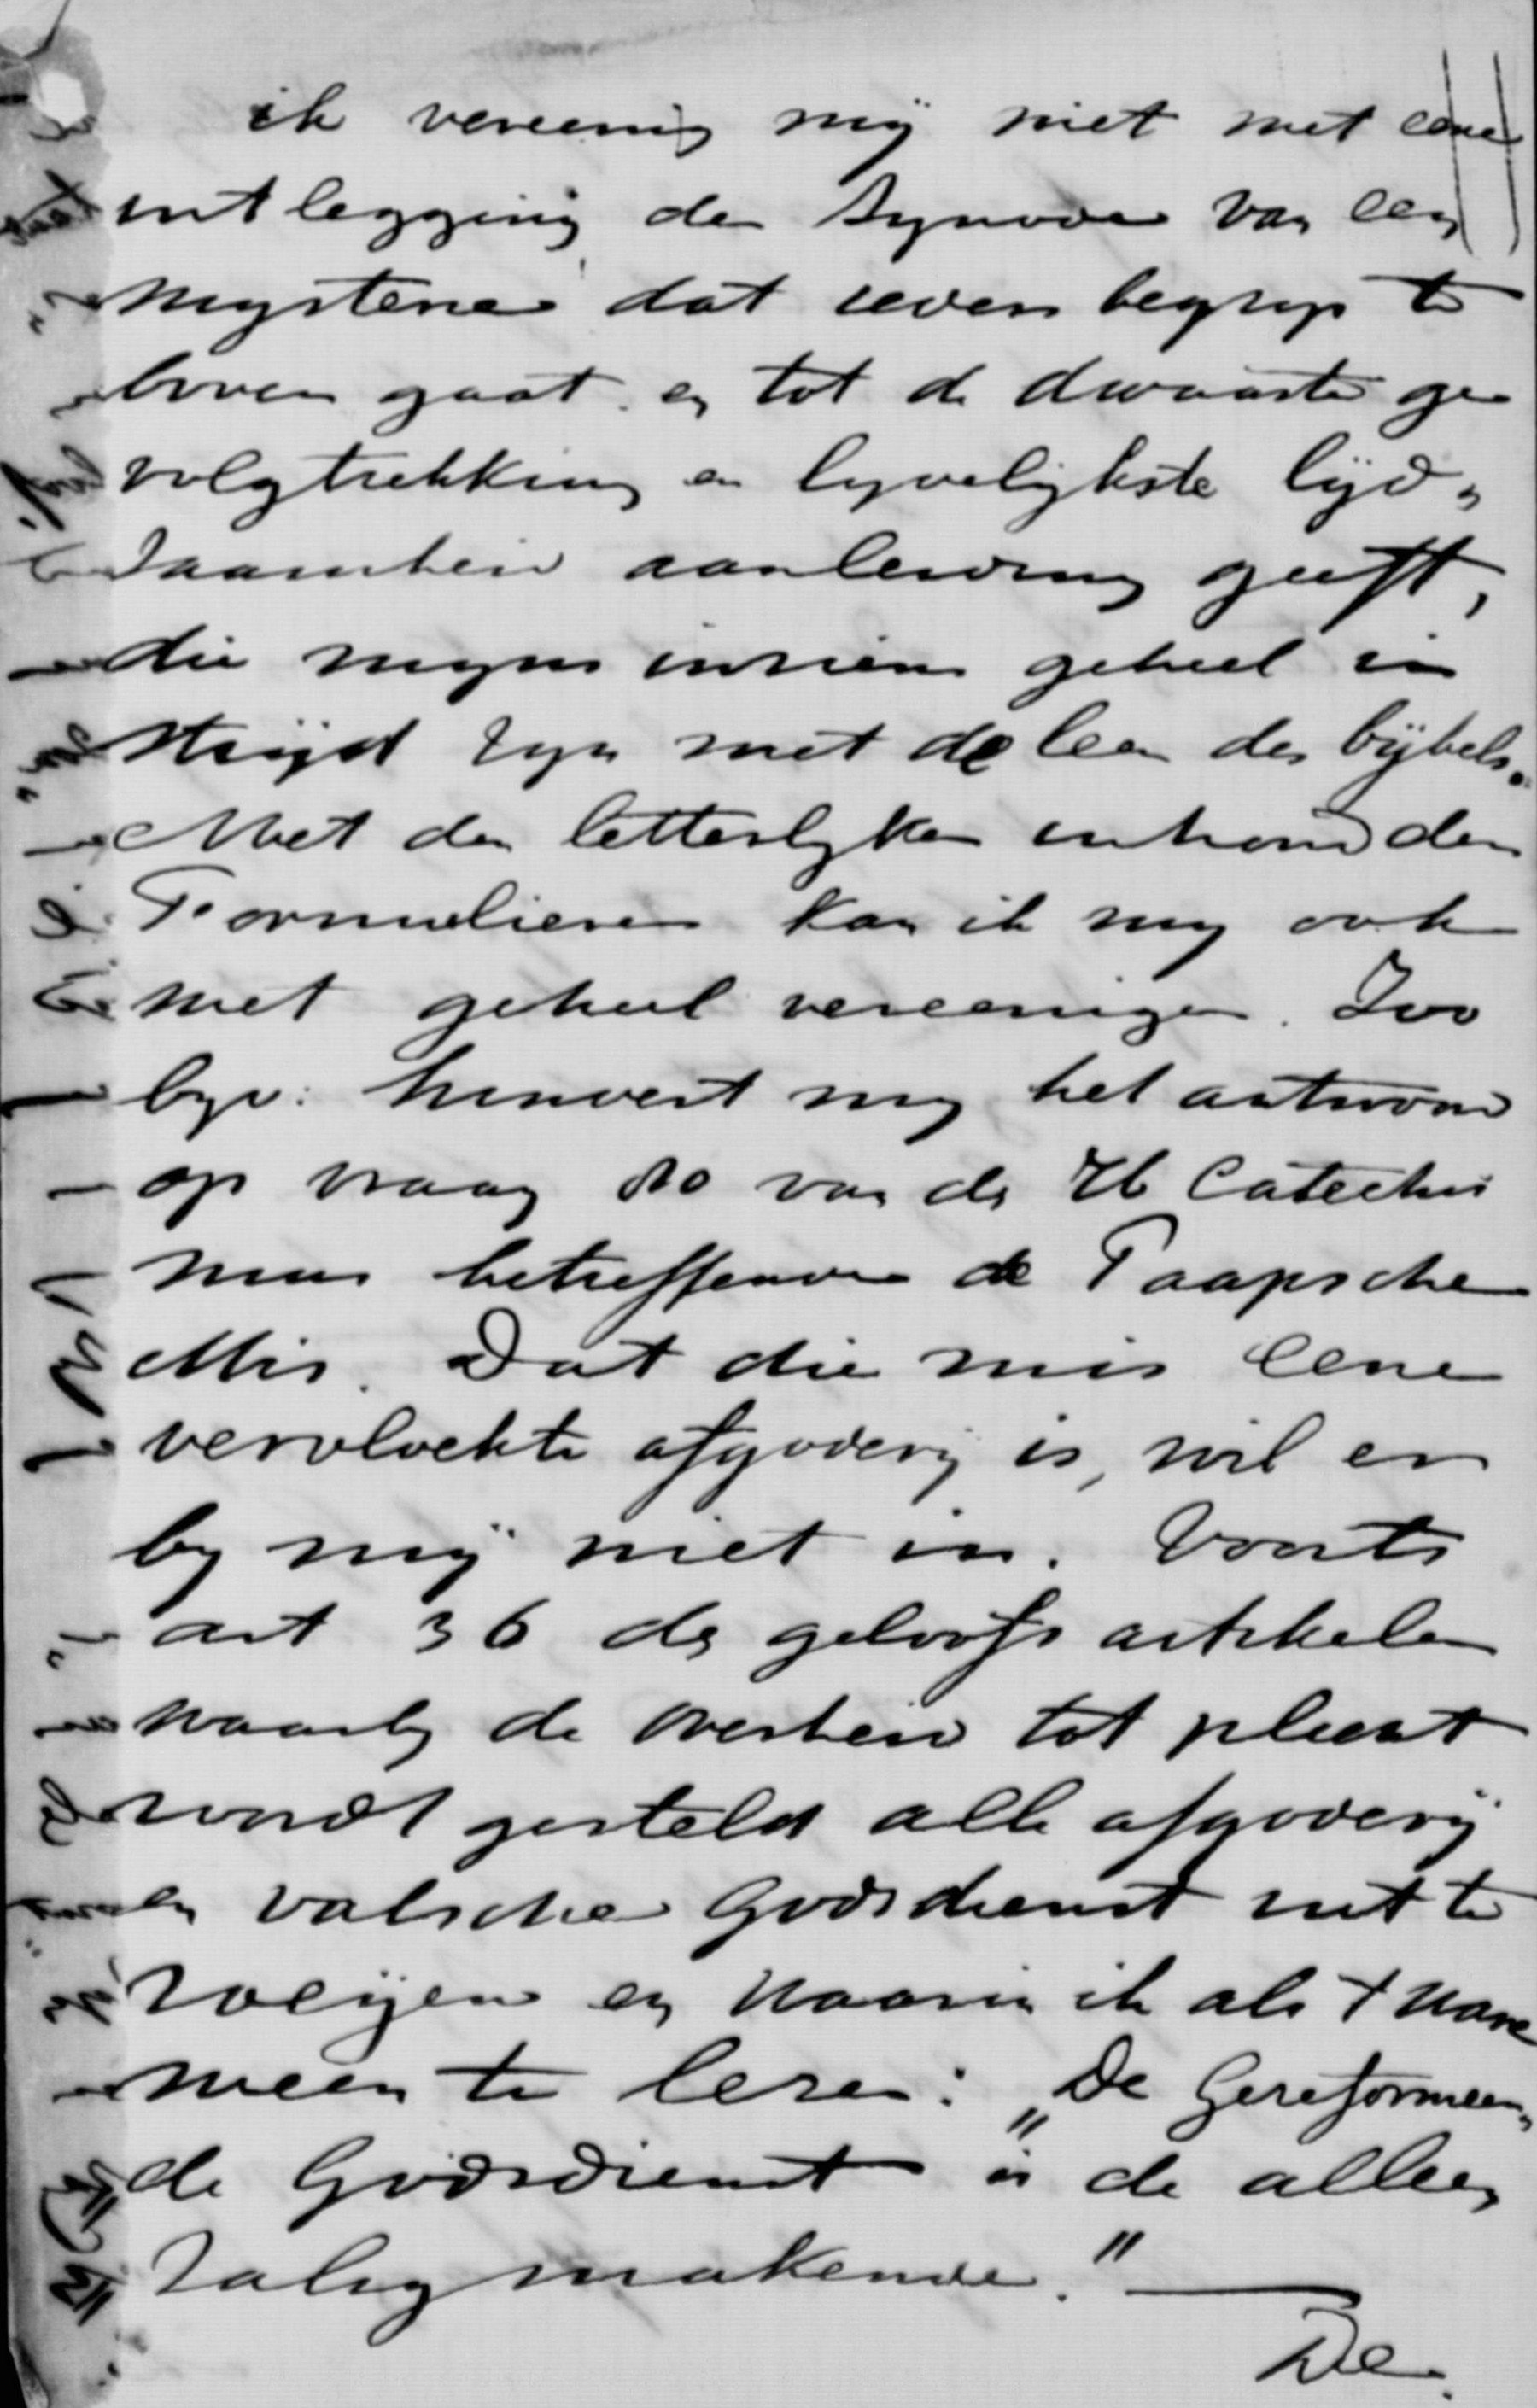 ik vereenig mij niet met eene
uitlegging der Synode van een
mysterie dat ieders begrip te
boven gaat en tot de dwaaste ge
volgtrekking en lijdelijkste lijd„
zaamheid aanleiding geeft,
die mijns inziens geheel in
strijd zijn met de leer des bijbels.
Met den letterlijken inhoud der
Formulieren kan ik mij ook
niet geheel vereenigen. Zoo
bijv: hindert mij het antwoord
op vraag 80 van de Hb Catechis
mus betreffende de Paapsche
Mis. Dat die mis eene
vervloekte afgoderij is, wil er
bij mij niet in. Voorts
art 36 der geloofs artikelen
waarbij de overheid tot plicht
wordt gesteld alle afgoderij
en valsche Godsdienst uit te
roeijen en waarin ik als t ware
meen te lezen: „De Gereformeer„
de Godsdienst is de alleen
Zaligmakende."
De